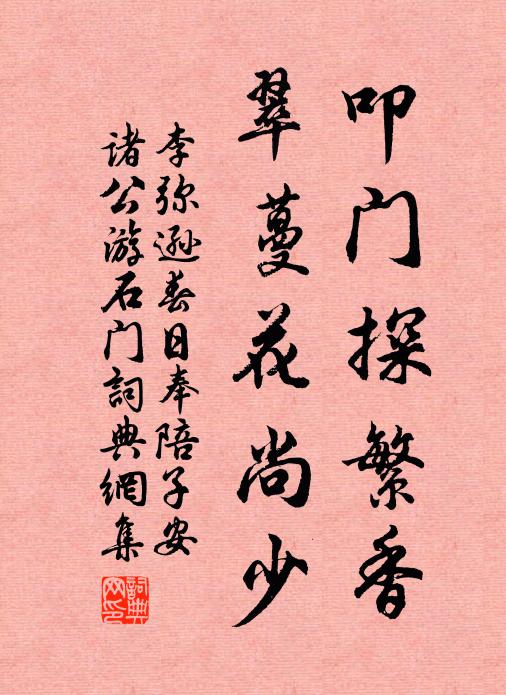 叩门探繁香
翠蔓花尚少
李弥逊春日奉陪子安
诸公游石门詞典網集
詞典网印